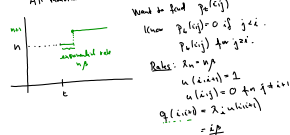 Want to find P_t(i,j)
Know P_t(i,j)=0 if j<i.
P_t(i,j) for j≥i.
Rates: λ_n = nβ
u(i,i+1)=1
u(i,j)=0 for j≠i+1
q(i,i+1) = λ_i u(i,i+1)
= iβ
n+1
n
exponential rate
nβ
t